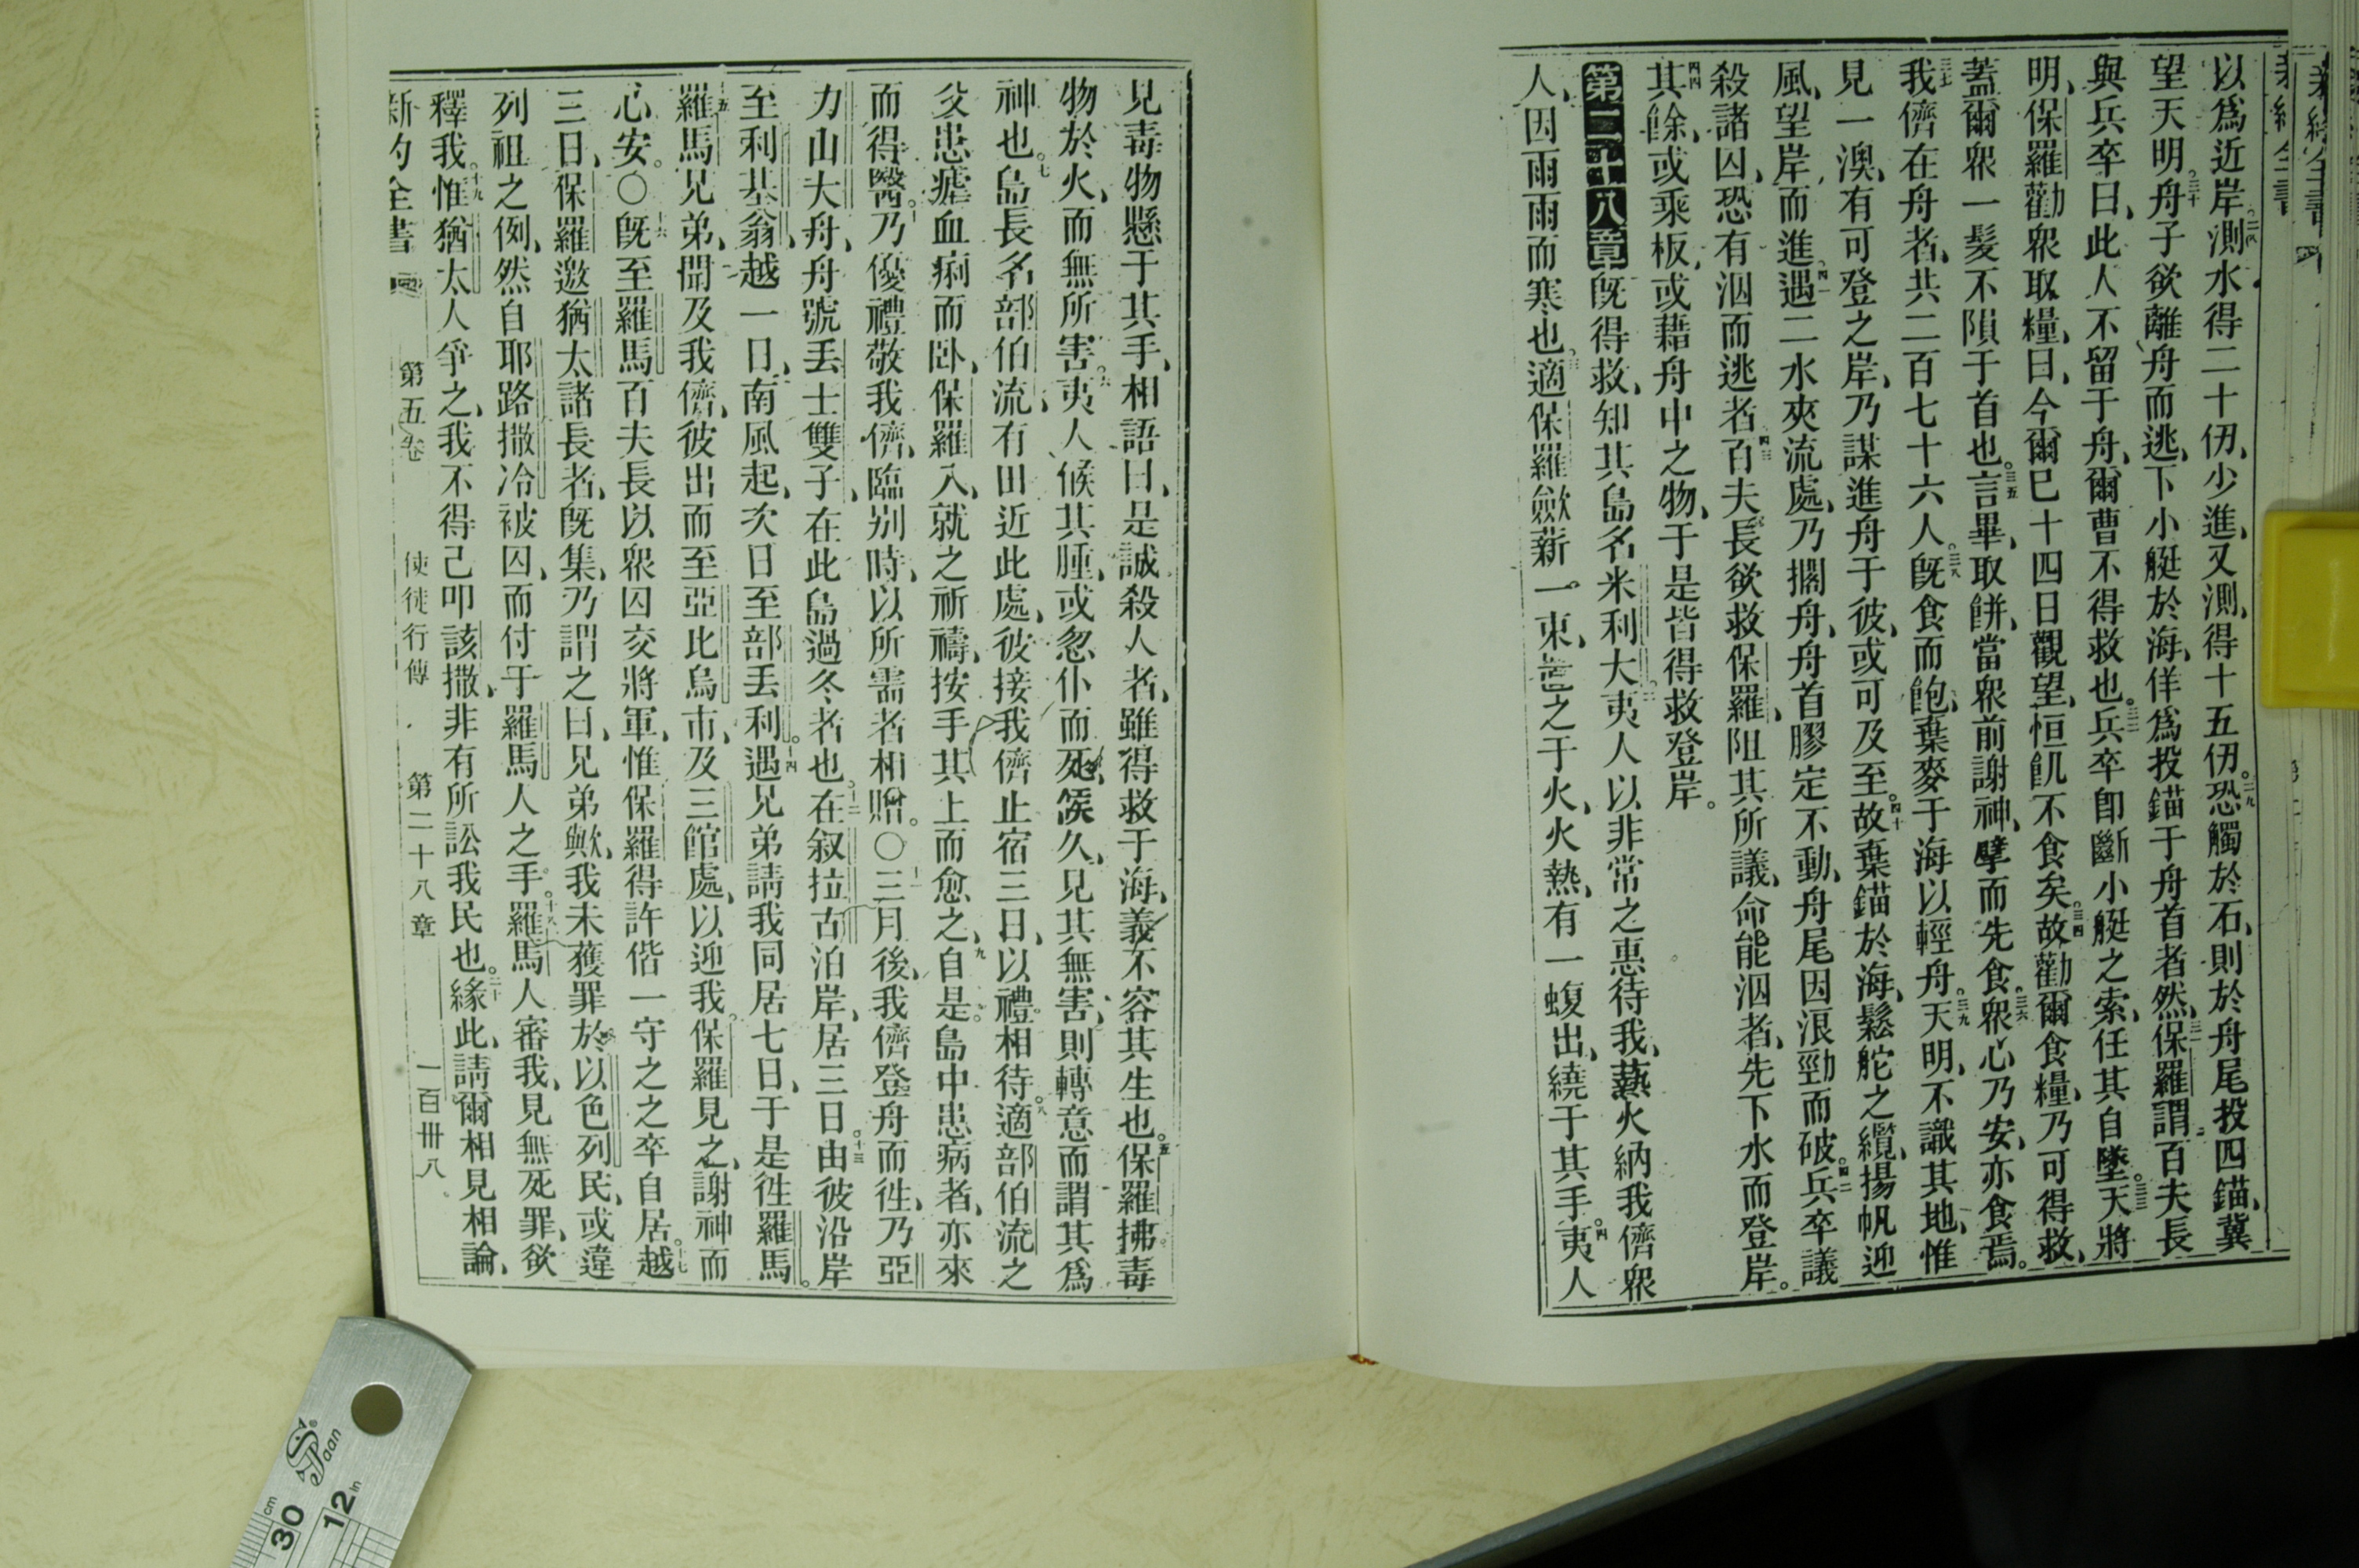 以爲近岸、二八測水得二十仞、少進、又測、得十五仞。二九恐觸於石、則於舟尾投四錨、冀
望天明。三十舟子欲離舟而逃、下小艇於海、佯爲投錨于舟首者然、三一保羅謂百夫長
與兵卒曰、此人不留于舟、爾曹不得救也。三二兵卒卽斷小艇之索、任其自墜。三三天將
明、保羅勸眾取糧、曰、今爾已十四日觀望、恒飢不食矣。三四故勸爾食糧、乃可得救、
蓋爾眾一髮不隕于首也。三五言畢、取餅、當眾前謝神、擘而先食。三六眾心乃安、亦食焉。
三七我儕在舟者、共二百七十六人。三八既食而飽、棄麥于海以輕舟。三九天明、不識其地、惟
見一澳、有可登之岸、乃謀進舟于彼、或可及至。四十故棄錨於海、鬆舵之纜、揚帆迎
風、望岸而進。四一遇二水夾流處、乃擱舟、舟首膠定不動、舟尾因浪勁而破。四二兵卒議
殺諸囚、恐有泅而逃者。四三百夫長欲救保羅、阻其所議、命能泅者、先下水而登岸。
四四其餘、或乘板、或藉舟中之物、于是皆得救登岸。
第二十八章既得救、知其島名米利大。二夷人以非常之惠待我、爇火納我儕眾
人、因雨雨而寒也。三適保羅斂薪一束、置之于火、火熱、有一蝮出、繞于其手。四夷人
見毒物懸于其手、相語曰、是誠殺人者、雖得救于海、義不容其生也。五保羅拂毒
物於火、而無所害。六夷人候其腫、或忽仆而死、俟久、見其無害、則轉意而謂其爲
神也。七島長名部伯流、有田近此處、彼接我儕止宿三日、以禮相待。八適部伯流之
父患瘧血痢而卧、保羅入、就之祈禱、按手其上而愈之、九自是島中患病者、亦來
而得醫。十乃優禮敬我儕、臨别時、以所需者相贈。〇十一三月後、我儕登舟而徃、乃亞
力山大舟、舟號丟士雙子、在此島過冬者也。十二在叙拉古泊岸、居三日。十三由彼沿岸
至利基翁、越一日、南風起、次日至部丟利。十四遇兄弟請我同居七日、于是徃羅馬。
十五羅馬兄弟、聞及我儕、彼出而至亞比烏市、及三館處、以迎我。保羅見之、謝神而
心安。〇十六既至羅馬百夫長以眾囚交將軍、惟保羅得許偕一守之之卒自居。十七越
三日、保羅邀猶太諸長者、既集、乃謂之曰、兄弟歟、我未獲罪於以色列民、或違
列祖之例、然自耶路撒冷被囚、而付于羅馬人之手。十八羅馬人審我、見無死罪、欲
釋我。十九惟猶太人爭之、我不得已叩該撒、非有所訟我民也。二十緣此、請爾相見相論、
新約全書 第五卷 使徒行傳 第二十八章 一百卌八
Spaan
cm
30
12
in